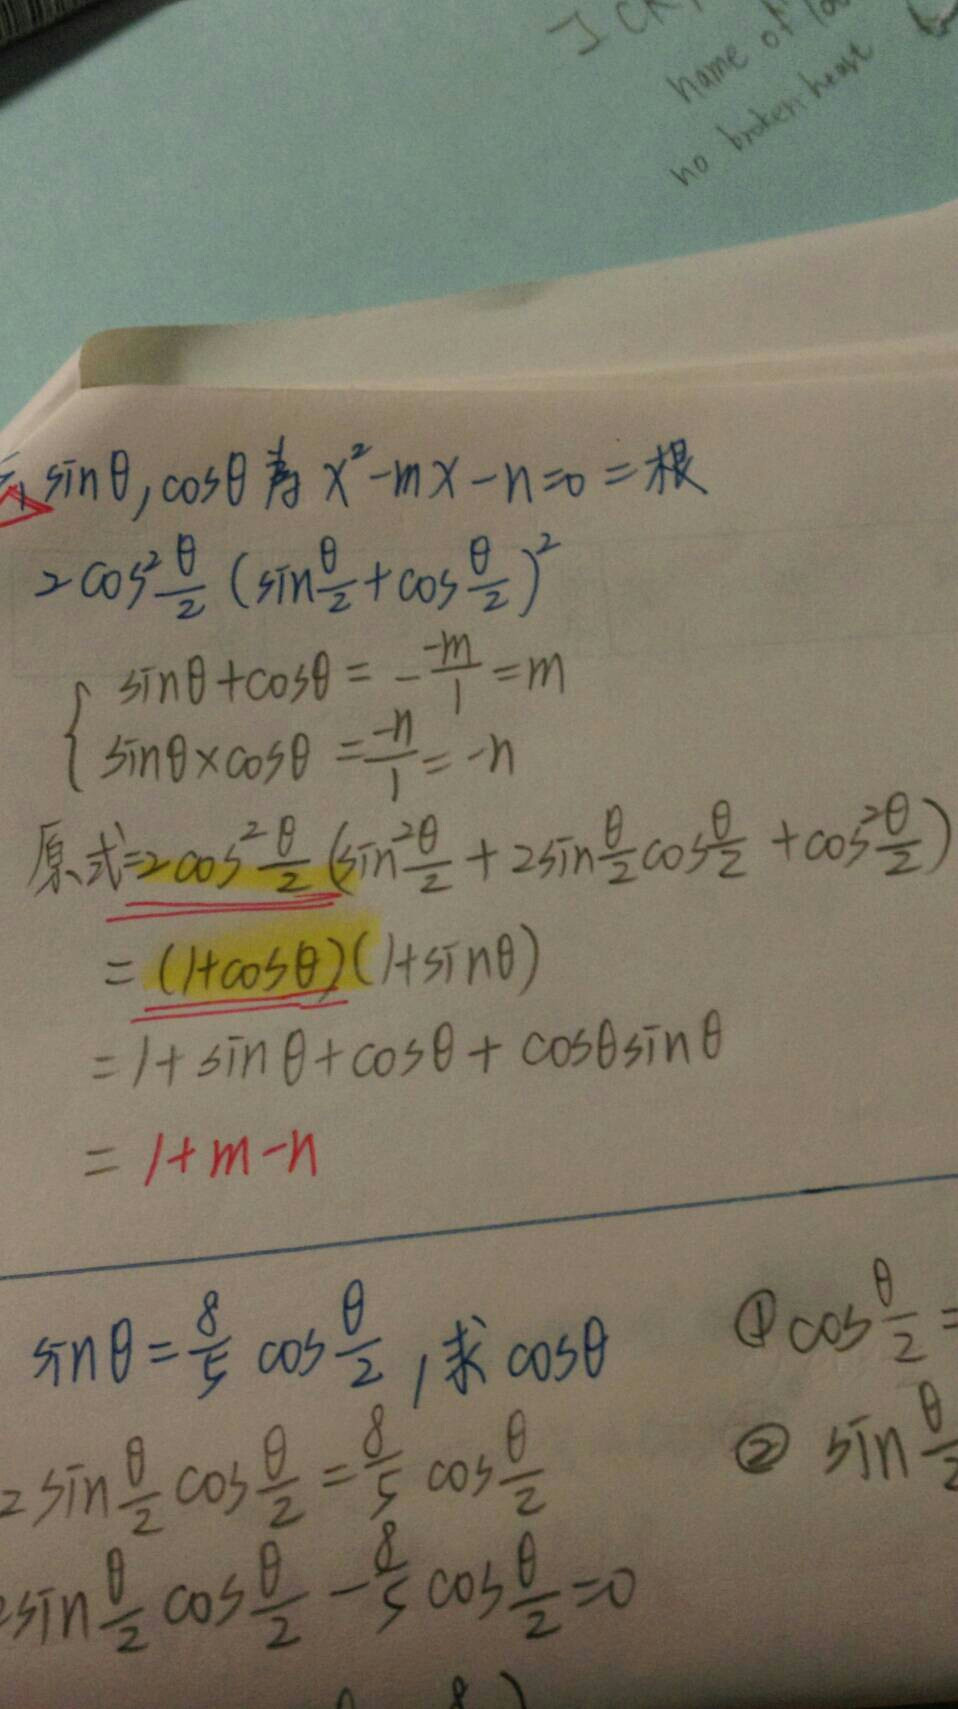 name of
no broken heart
sinθ, cosθ 為 x²-mx-n=0 二根
2cos²θ/2 (sinθ/2+cosθ/2)²
{ sinθ+cosθ = - -m/1 = m
sinθ×cosθ = -n/1 = -n
原式=2cos²θ/2 (sin²θ/2 + 2sinθ/2cosθ/2 + cos²θ/2)
= (1+cosθ)(1+sinθ)
= 1+sinθ+cosθ+cosθsinθ
= 1+m-n
sinθ = 8/5 cosθ/2, 求cosθ
① cosθ/2 =
② sinθ/2
2sinθ/2 cosθ/2 = 8/5 cosθ/2
2sinθ/2 cosθ/2 - 8/5 cosθ/2 = 0